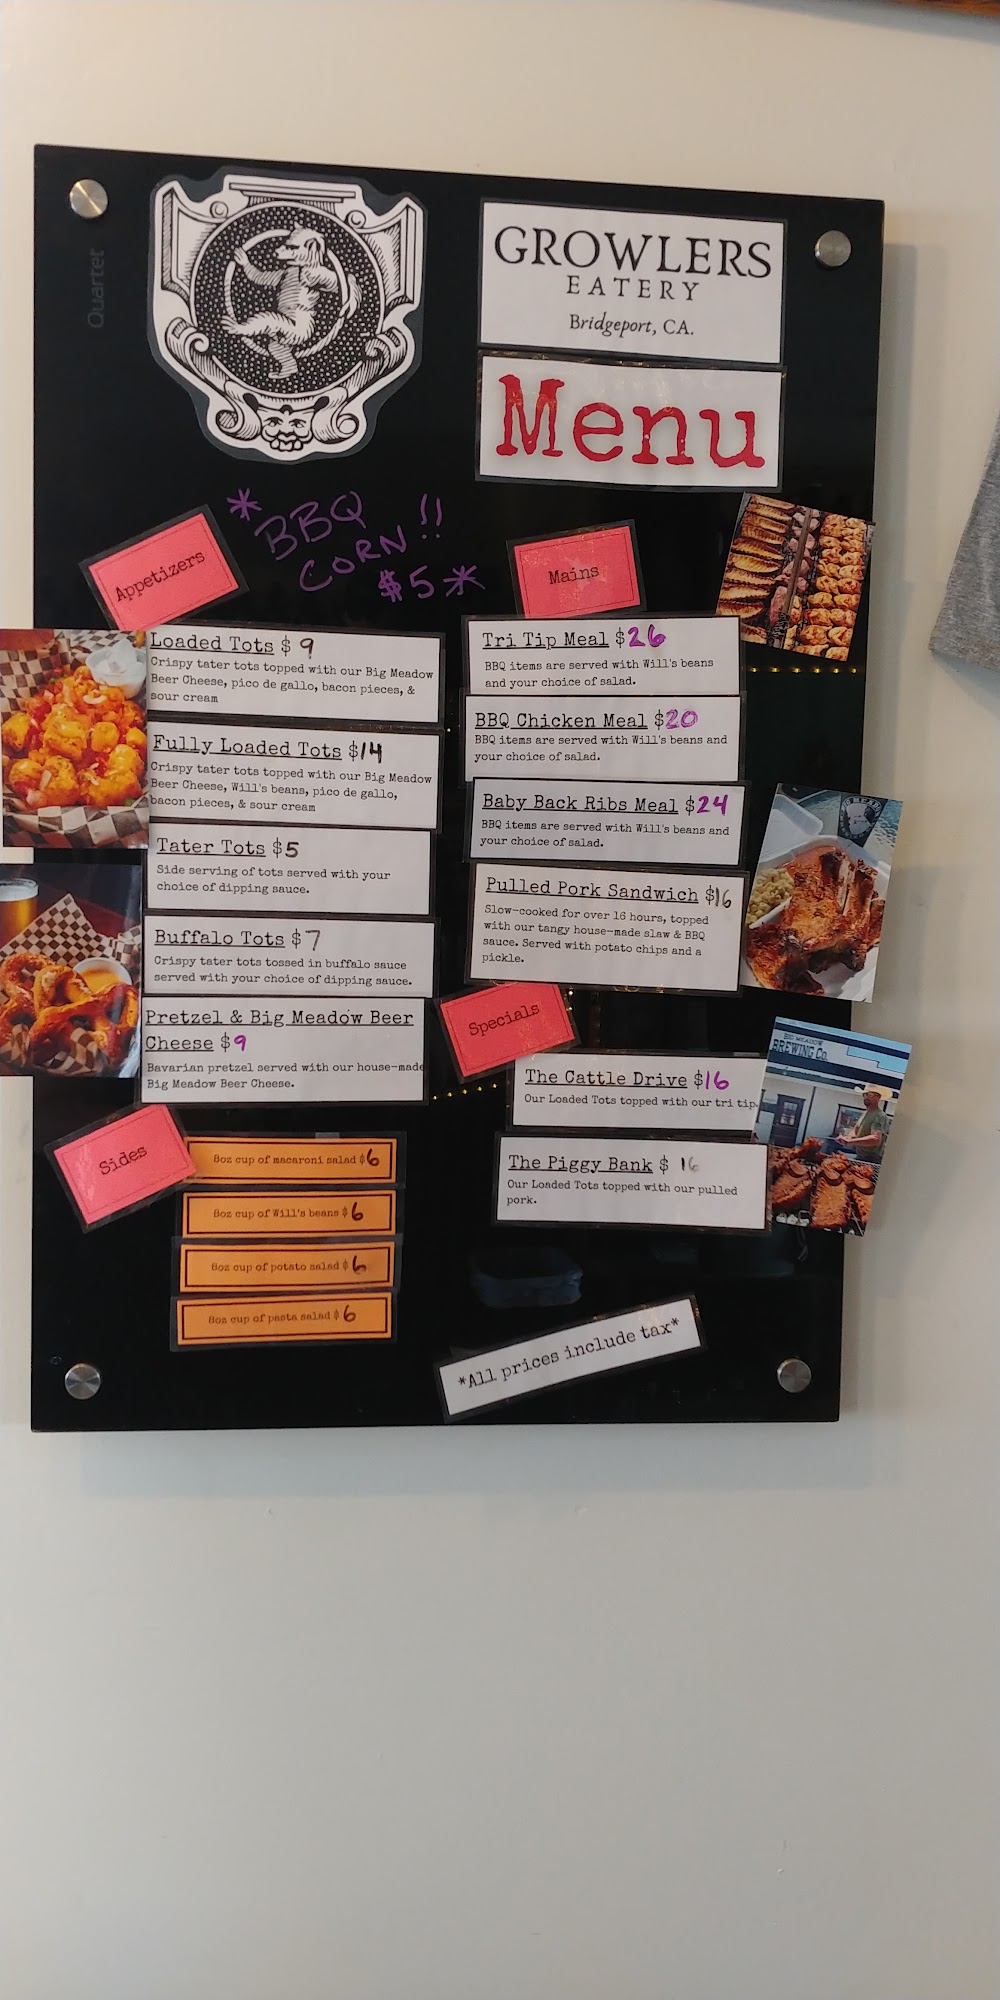 Quarter
GROWLERS
EATERY
Bridgeport, CA.
Menu
*BBQ
CORN!!
$5*
Appetizers
Loaded Tots $ 9
Crispy tater tots topped with our Big Meadow
Beer Cheese, pico de gallo, bacon pieces, &
sour cream
Fully Loaded Tots $14
Crispy tater tots topped with our Big Meadow
Beer Cheese, Will's beans, pico de gallo,
bacon pieces, & sour cream
Tater Tots $5
Side serving of tots served with your
choice of dipping sauce.
Buffalo Tots $7
Crispy tater tots tossed in buffalo sauce
served with your choice of dipping sauce.
Pretzel & Big Meadow Beer
Cheese $9
Bavarian pretzel served with our house-made
Big Meadow Beer Cheese.
Sides
8oz cup of macaroni salad $6
8oz cup of Will's beans $6
8oz cup of potato salad $6
8oz cup of pasta salad $6
Mains
Tri Tip Meal $26
BBQ items are served with Will's beans
and your choice of salad.
BBQ Chicken Meal $20
BBQ items are served with Will's beans and
your choice of salad.
Baby Back Ribs Meal $24
BBQ items are served with Will's beans and
your choice of salad.
Pulled Pork Sandwich $16
Slow-cooked for over 16 hours, topped
with our tangy house-made slaw & BBQ
sauce. Served with potato chips and a
pickle.
Specials
The Cattle Drive $16
Our Loaded Tots topped with our tri tip.
The Piggy Bank $ 16
Our Loaded Tots topped with our pulled
pork.
BIG MEADOW
BREWING Co.
*All prices include tax*